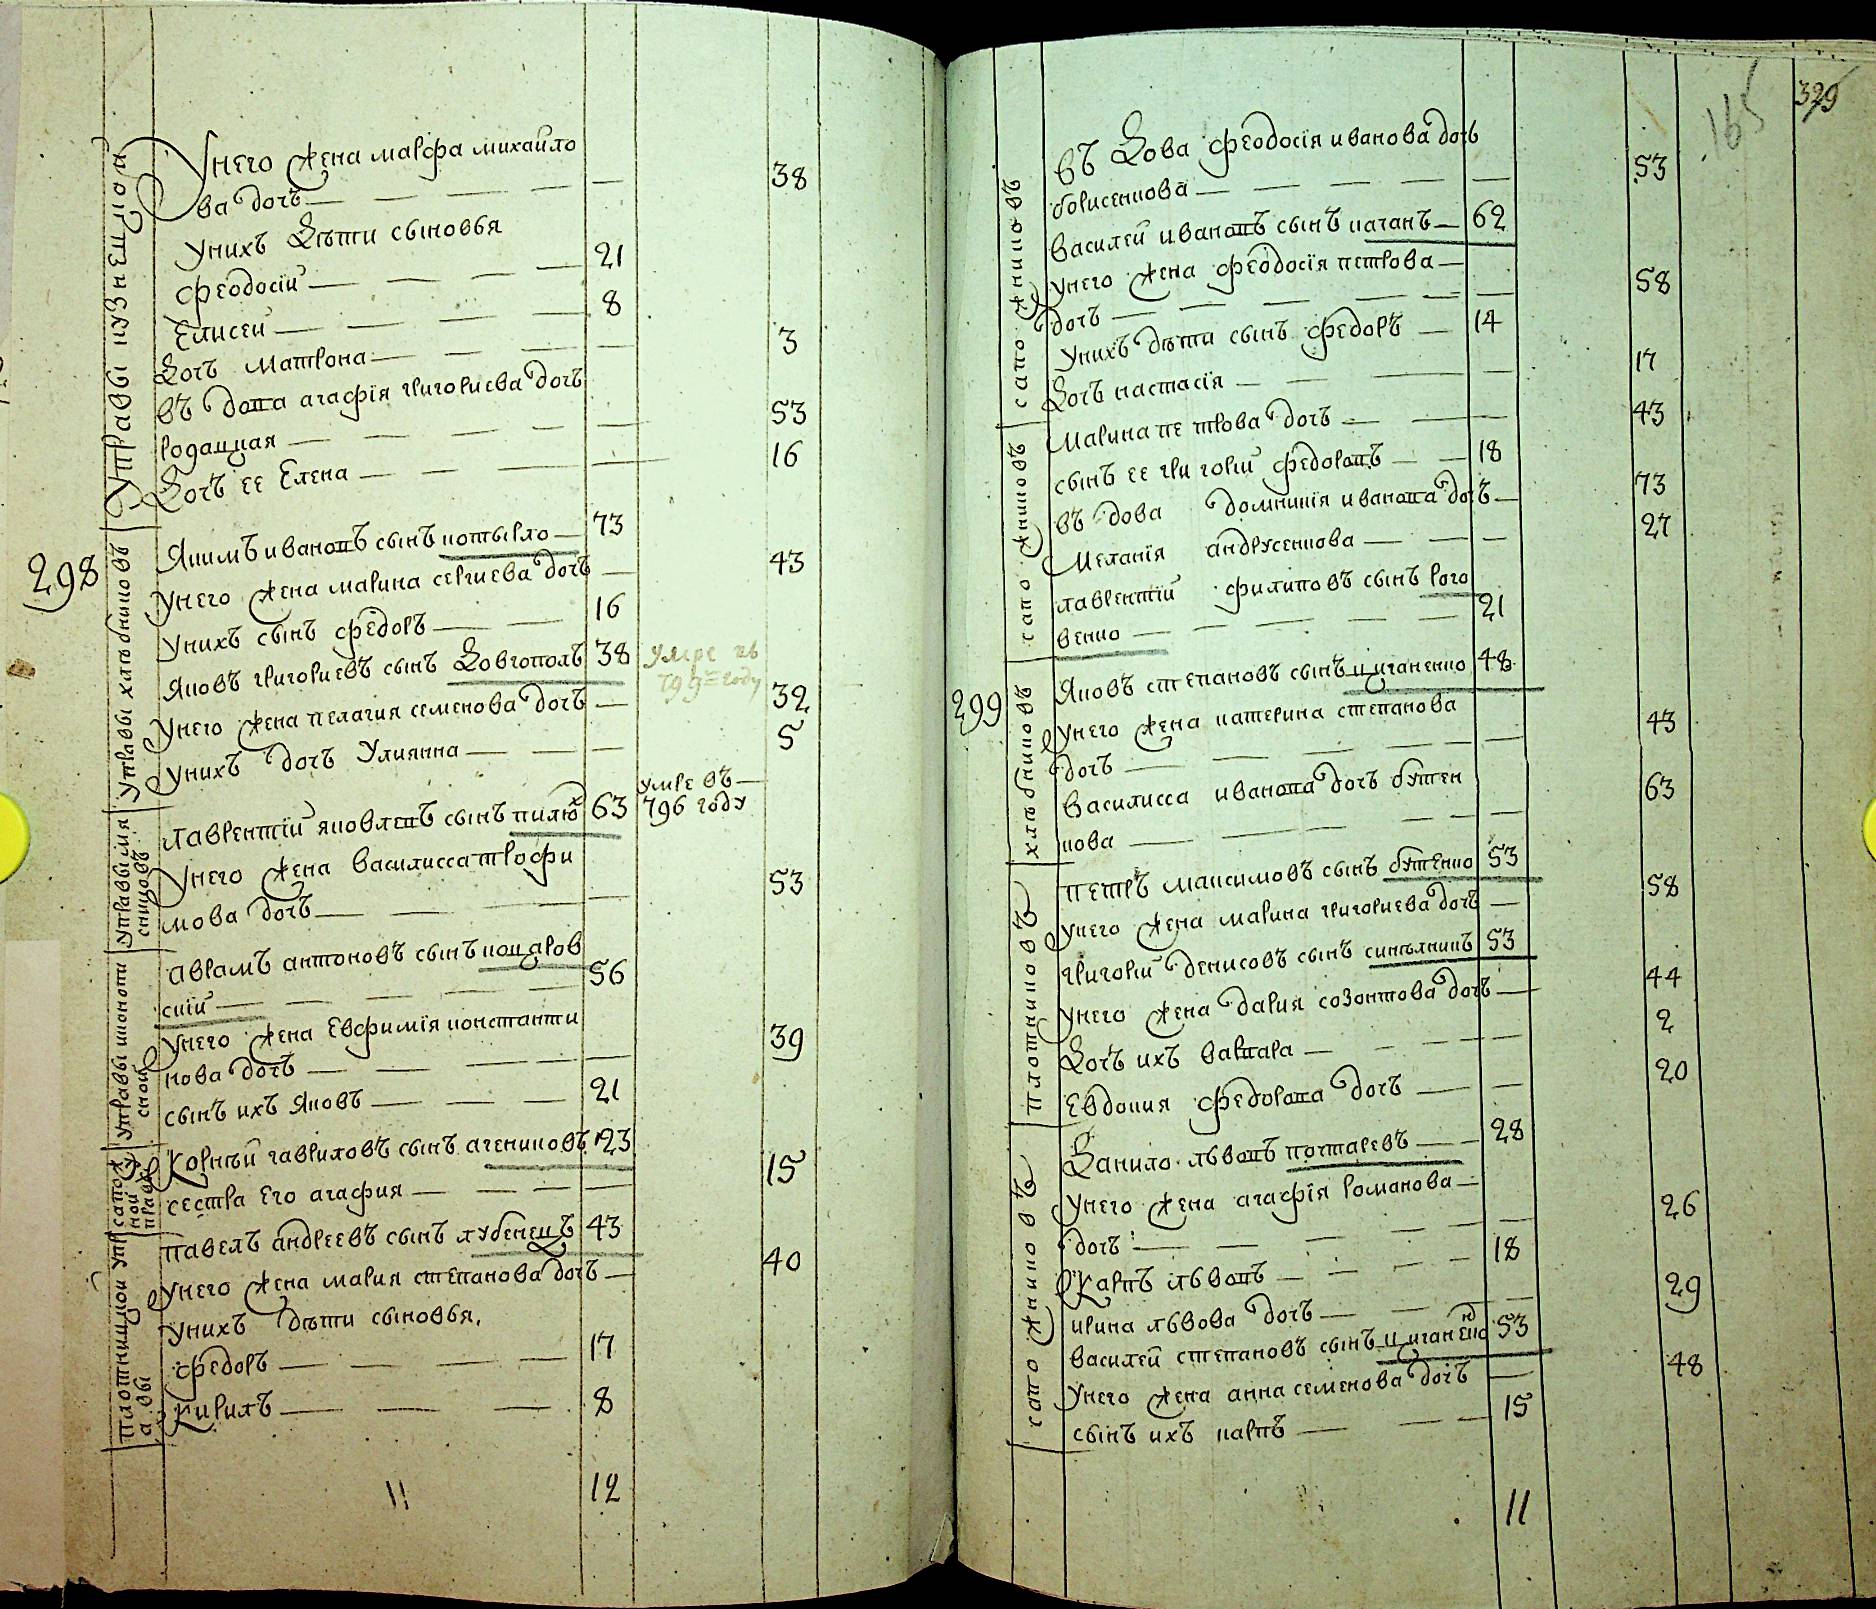 Управы кузнецкой
Унего жена марфа михайло
ва дочь 38
унихъ дѣти сыновья
феодосій 21
Елисей 8
Дочь матрона 3
въ дова агафія григориева дочь
родацкая 53
Дочь ее Елена 16
298
Управы хлѣбниковъ
Якимъ ивановъ сынъ котырло 73
Унего жена марина сергиева дочь 43
унихъ сынъ федоръ 16
Яковъ григориевъ сынъ Довгополъ 38 умре въ
793 году
Унего жена пелагия семенова дочь 32
унихъ дочь Улиянна 5
Управы мя
сницовъ
лаврентій яковлевъ сынъ 63 умре въ
796 году
Унего жена василисса трофи
мова дочь 53
Управы шкопоти
сной
аврамъ антоновъ сынъ коцаров
скій 56
унего жена Евфимія константи
нова дочь 39
сынъ ихъ Яковъ 21
сапож
ной у
правы
Корнѣй гавриловъ сынъ агениковъ 23
сестра Его агафия 15
плотницкой упр
авы
павелъ андреевъ сынъ лубенецъ 43
Унего жена мария степанова дочь 40
унихъ дѣти сыновья
федоръ 17
Кирилъ 8
11 12
329
165
сапожниковъ
въ Дова феодосія иванова дочь
борисенкова 53
василей ивановъ сынъ каганъ 62
унего жена феодосія петрова
дочь 58
Унихъ дѣти сынъ федоръ 14
Дочь настасія 17
сапожниковъ
Марина петрова дочь 43
сынъ ее григорій федоровъ 18
въ дова домникія иванова дочь 73
Меланія андрусенкова 27
лаврентій филиповъ сынъ рого
венко 21
299
хлѣбниковъ
Яковъ степановъ сынъ циганенко 48
Унего жена катерина степанова
дочь 43
василисса иванова дочь бутен
кова 63
плотниковъ
петръ максимовъ сынъ бутенко 53
унего жена марина григориева дочь 58
григорій денисовъ сынъ синѣлникъ 53
унего жена дария созонтова дочь 44
Дочь ихъ варвара 2
евдокия федорова дочь 20
сапожниковъ
Данило львовъ почтаревъ 28
Унего жена агафія романова
дочь 26
Карпъ львовъ 18
ирина львова дочь 29
василей степановъ сынъ циганенко 53
Унего жена анна семенова дочь 48
сынъ ихъ карпъ 15
11